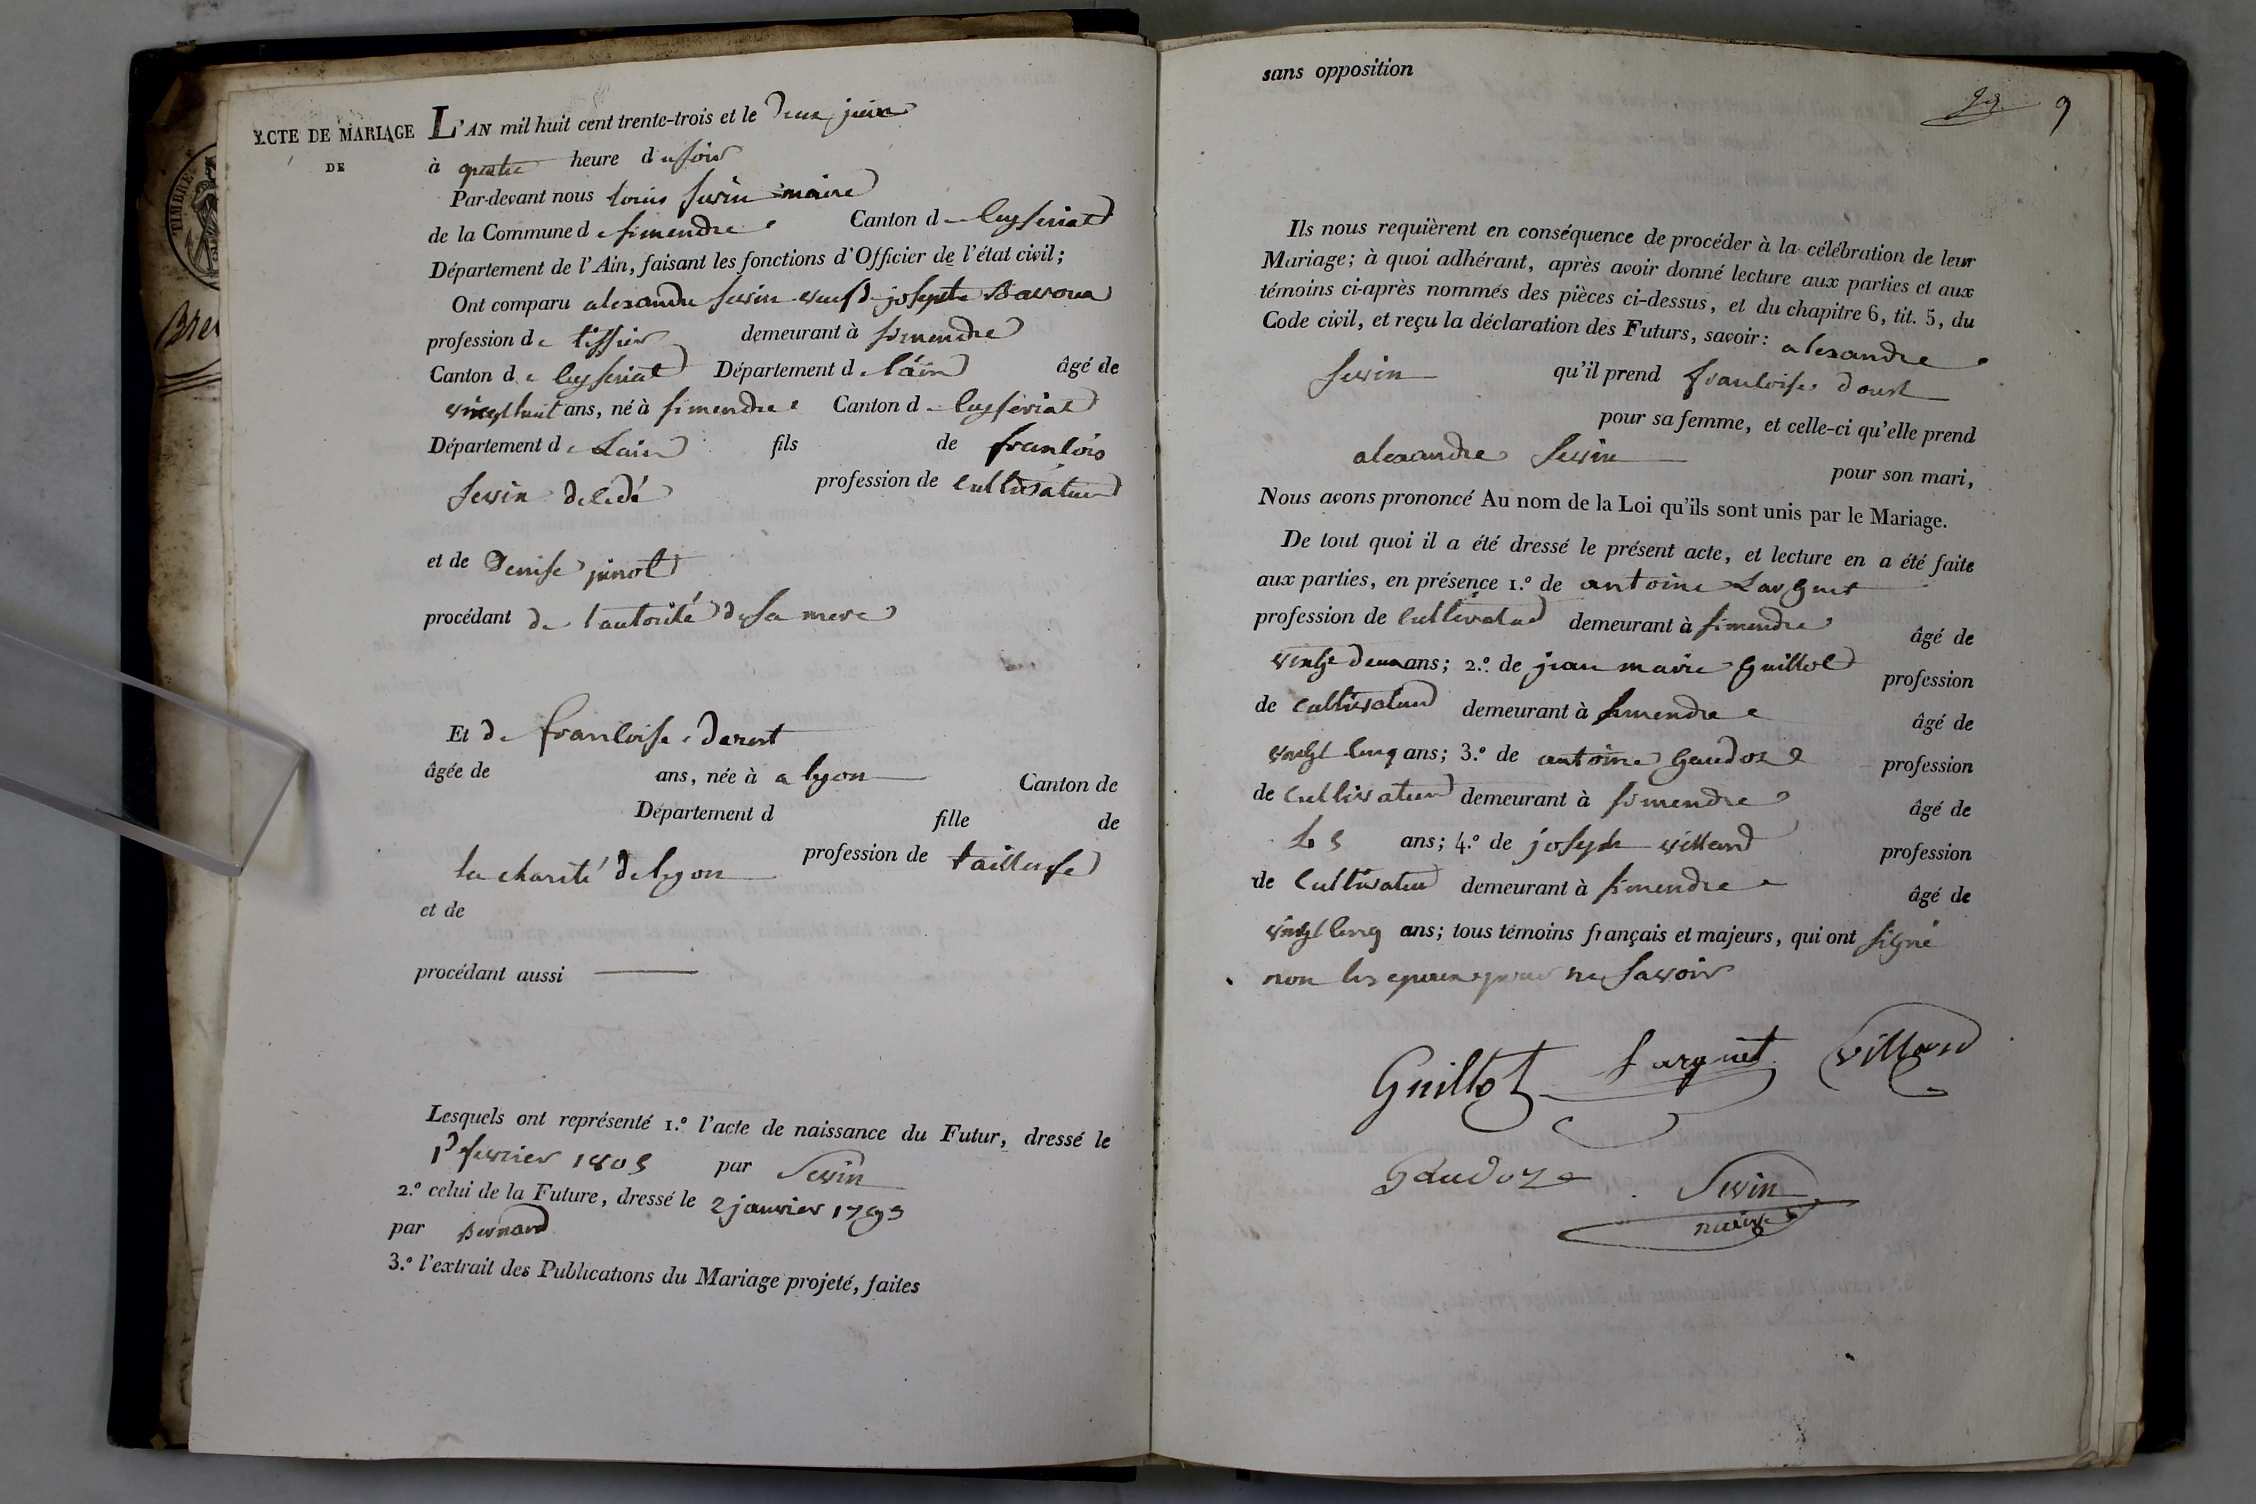 ACTE DE MARIAGE
DE
TIMBRE
L'AN mil huit cent trente-trois et le deux juin
à quatre heure du soir
Par-devant nous louis sevin maire
de la Commune de simendre Canton de Ceyseriat
Département de l'Ain, faisant les fonctions d'Officier de l'état civil;
Ont comparu alexandre sevin veuf de josephte
profession de tissier demeurant à simendre
Canton de Ceyseriat Département de l'ain âgé de
vingt huit ans, né à simendre Canton de Ceyseriat
Département de Lain fils de francois
sevin décédé profession de cultivateur
et de Denise
procédant de l'autorité de sa mere
Et de francoise
âgée de ans, née à a lyon Canton de
Département d fille de
la charité de lyon profession de tailleuse
et de
procédant aussi
Lesquels ont représenté 1.º l'acte de naissance du Futur, dressé le
fevrier 1805 par Sevin
2.º celui de la Future, dressé le 2 janvier 1793
par Bernard
3.º l'extrait des Publications du Mariage projeté, faites
sans opposition
9
Ils nous requièrent en conséquence de procéder à la célébration de leur
Mariage; à quoi adhérant, après avoir donné lecture aux parties et aux
témoins ci-après nommés des pièces ci-dessus, et du chapitre 6, tit. 5, du
Code civil, et reçu la déclaration des Futurs, savoir: alexandre
sevin qu'il prend francoise
pour sa femme, et celle-ci qu'elle prend
alexandre sevin pour son mari,
Nous avons prononcé Au nom de la Loi qu'ils sont unis par le Mariage.
De tout quoi il a été dressé le présent acte, et lecture en a été faite
aux parties, en présence 1.º de antoine Larguet
profession de cultivateur demeurant à simendre âgé de
vingt deux ans; 2.º de jean marie guillot profession
de cultivateur demeurant à simendre âgé de
vingt cinq ans; 3.º de antoine gaudoz profession
de cultivateur demeurant à simendre âgé de
ans; 4.º de joseph villard profession
de cultivateur demeurant à simendre âgé de
vingt cinq ans; tous témoins français et majeurs, qui ont signé
non les epoux pour ne savoir
Guillot Larguet villard
gaudoz
Sevin
maire